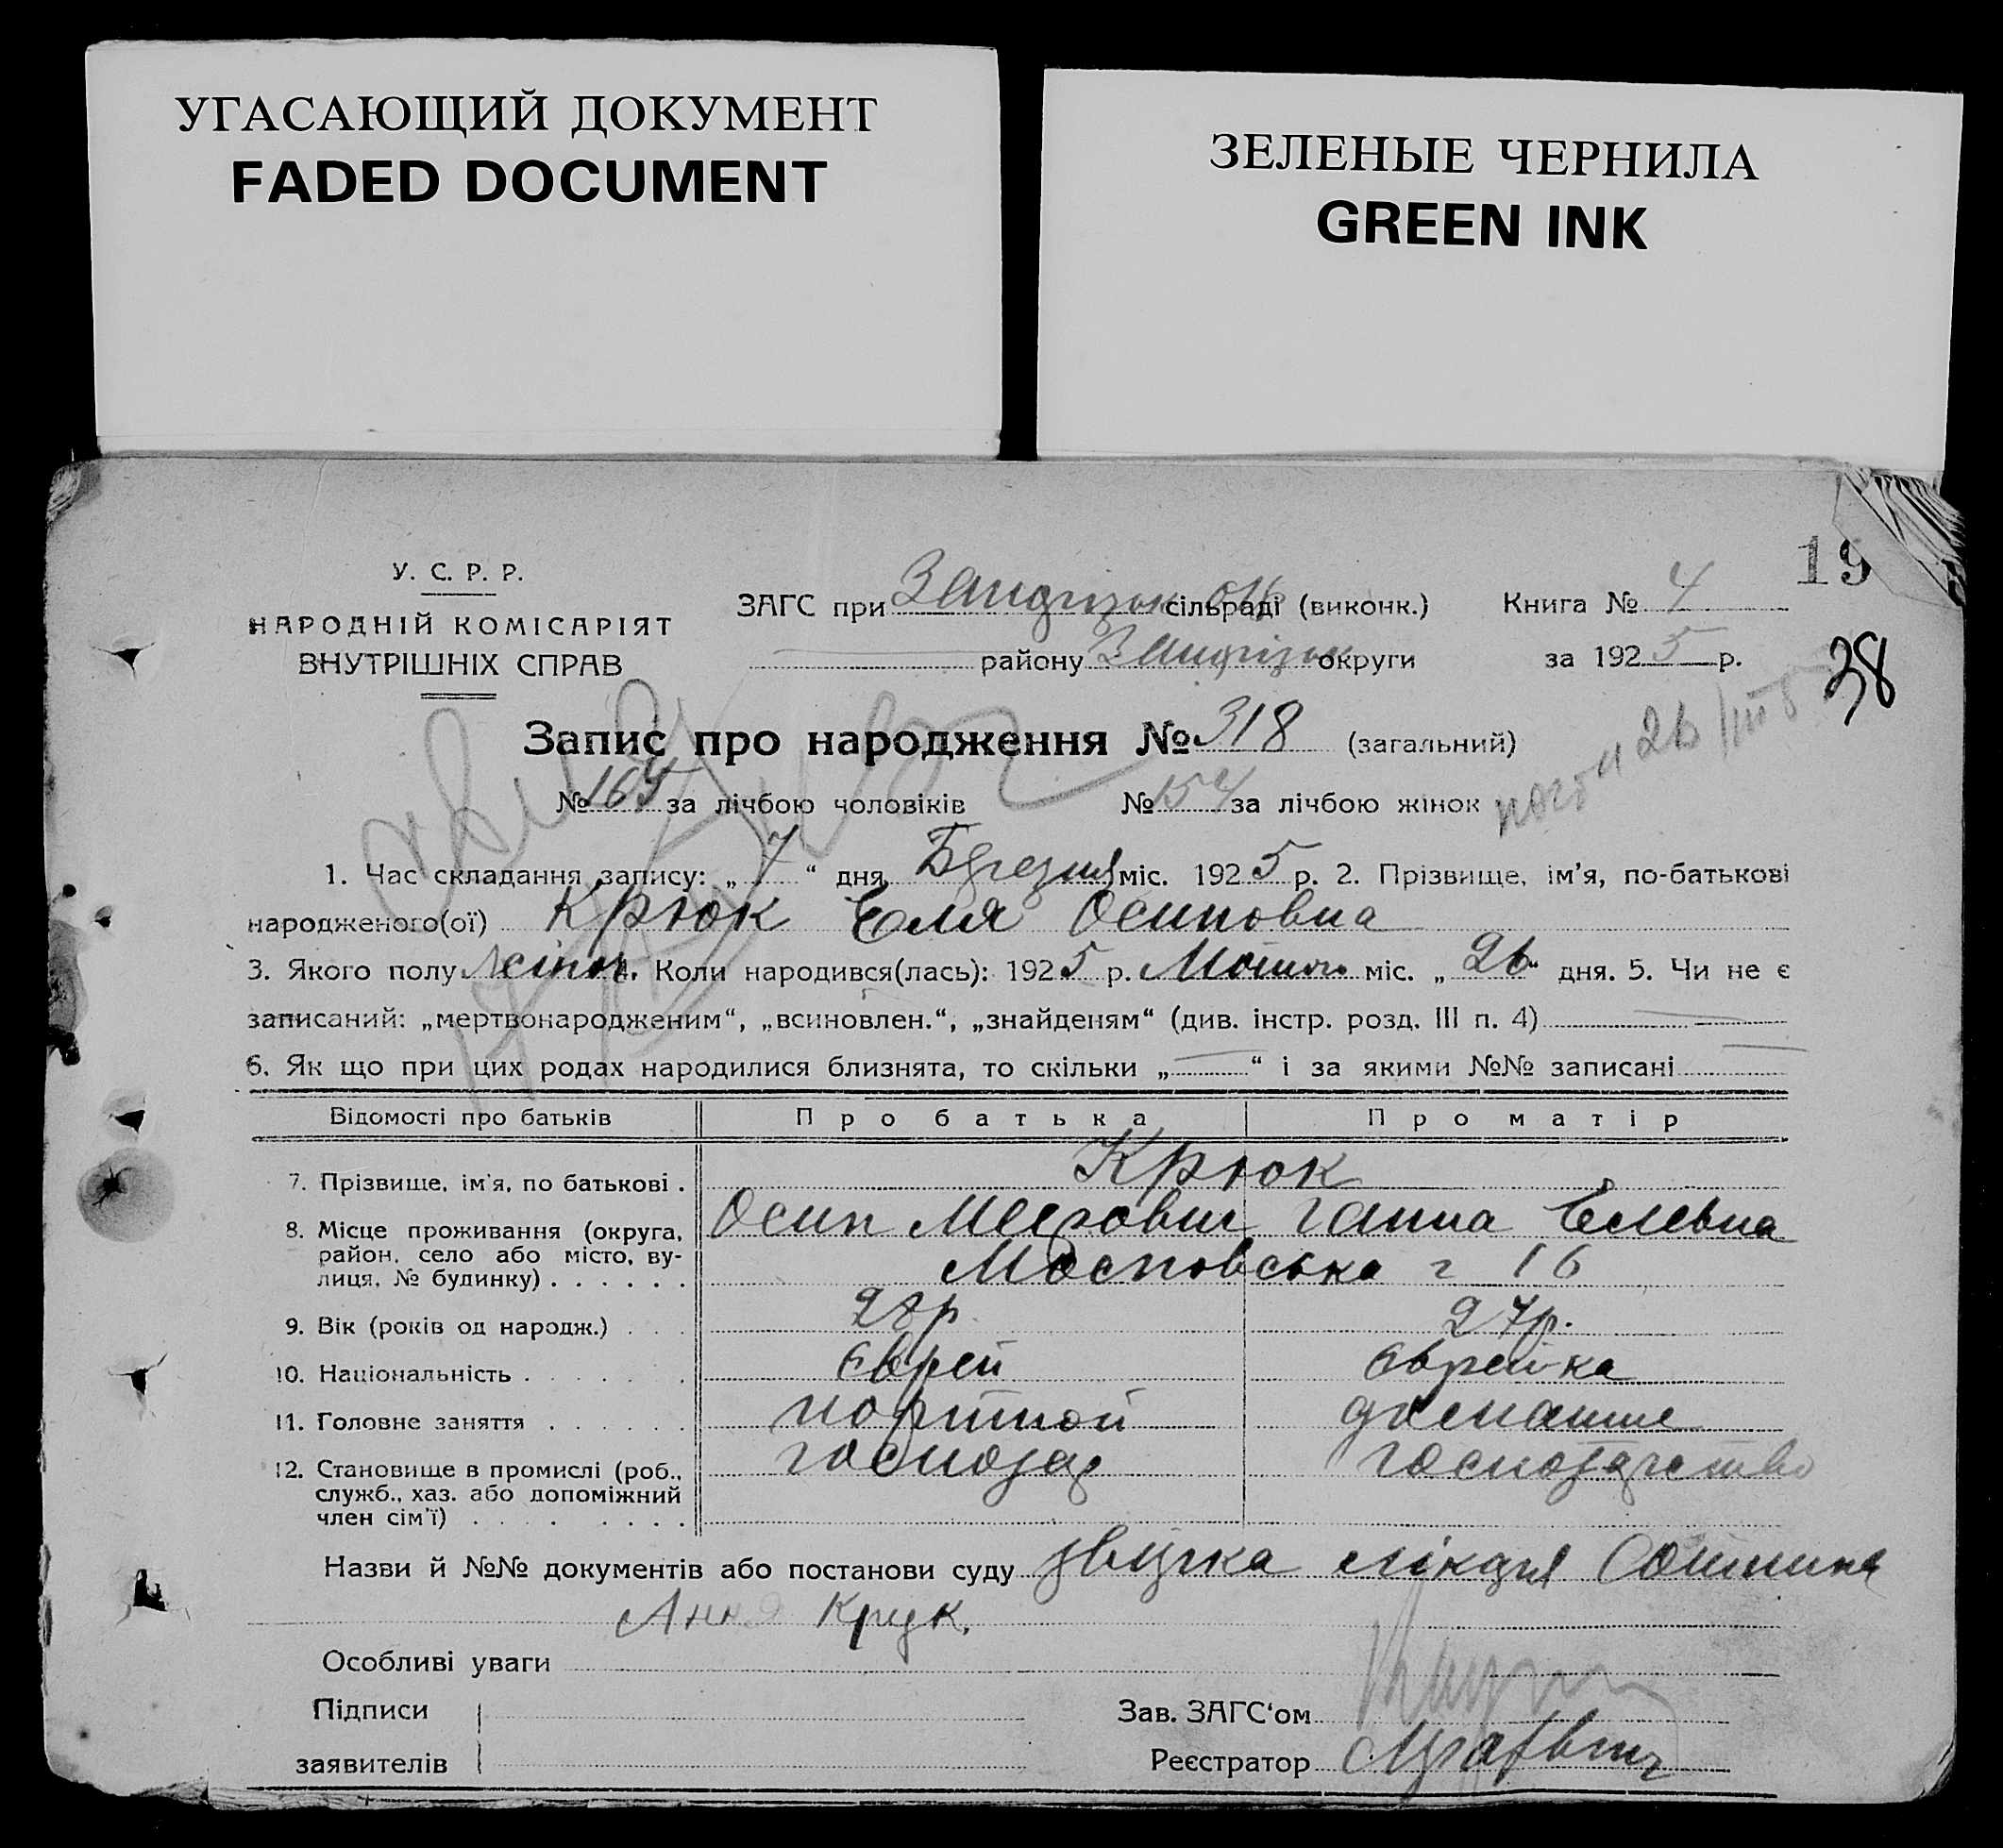 УГАСАЮЩИЙ ДОКУМЕНТ
FADED DOCUMENT
ЗЕЛЕНЫЕ ЧЕРНИЛА
GREEN INK
19
38
У. С. Р. Р.
НАРОДНІЙ КОМІСАРІЯТ
ВНУТРІШНІХ СПРАВ
ЗАГС при сільраді (виконк.) Книга № 4
району округи за 1925 р.
Запис про народження № 318 (загальний)
№ за лічбою чоловіків № 154 за лічбою жінок
1. Час складання запису: „ 7 “ дня Березня міс. 1925 р. 2. Прізвище, ім'я, по-батькові
народженого(ої) Крюк Еля Осиповна
3. Якого полу жіноч. 4. Коли народився(лась): 1925 р. міс. „ 26 “ дня. 5. Чи не є
записаний: „мертвонародженим“, „всиновлен.“, „знайденям“ (див. інстр. розд. III п. 4)
6. Як що при цих родах народилися близнята, то скільки „ “ і за якими №№ записані
Відомості про батьків Про батька Про матір
7. Прізвище, ім'я, по батькові . Крюк
Осип Меерович Ганна Елевна
8. Місце проживання (округа, район, село або місто, ву-
лиця, № будинку) . . . . . . 16
9. Вік (років од народж.) . . . 28р 27р.
10. Національність . . . . . . . Єврей Єврейка
11. Головне заняття . . . . . . портной домашне
12. Становище в промислі (роб., господар господарство
служб., хаз. або допоміжний
член сім'ї) . . . . . . . .
Назви й №№ документів або постанови суду звідка лікаря
Анна Крук.
Особливі уваги
Підписи
заявителів
Зав. ЗАГС'ом
Реєстратор